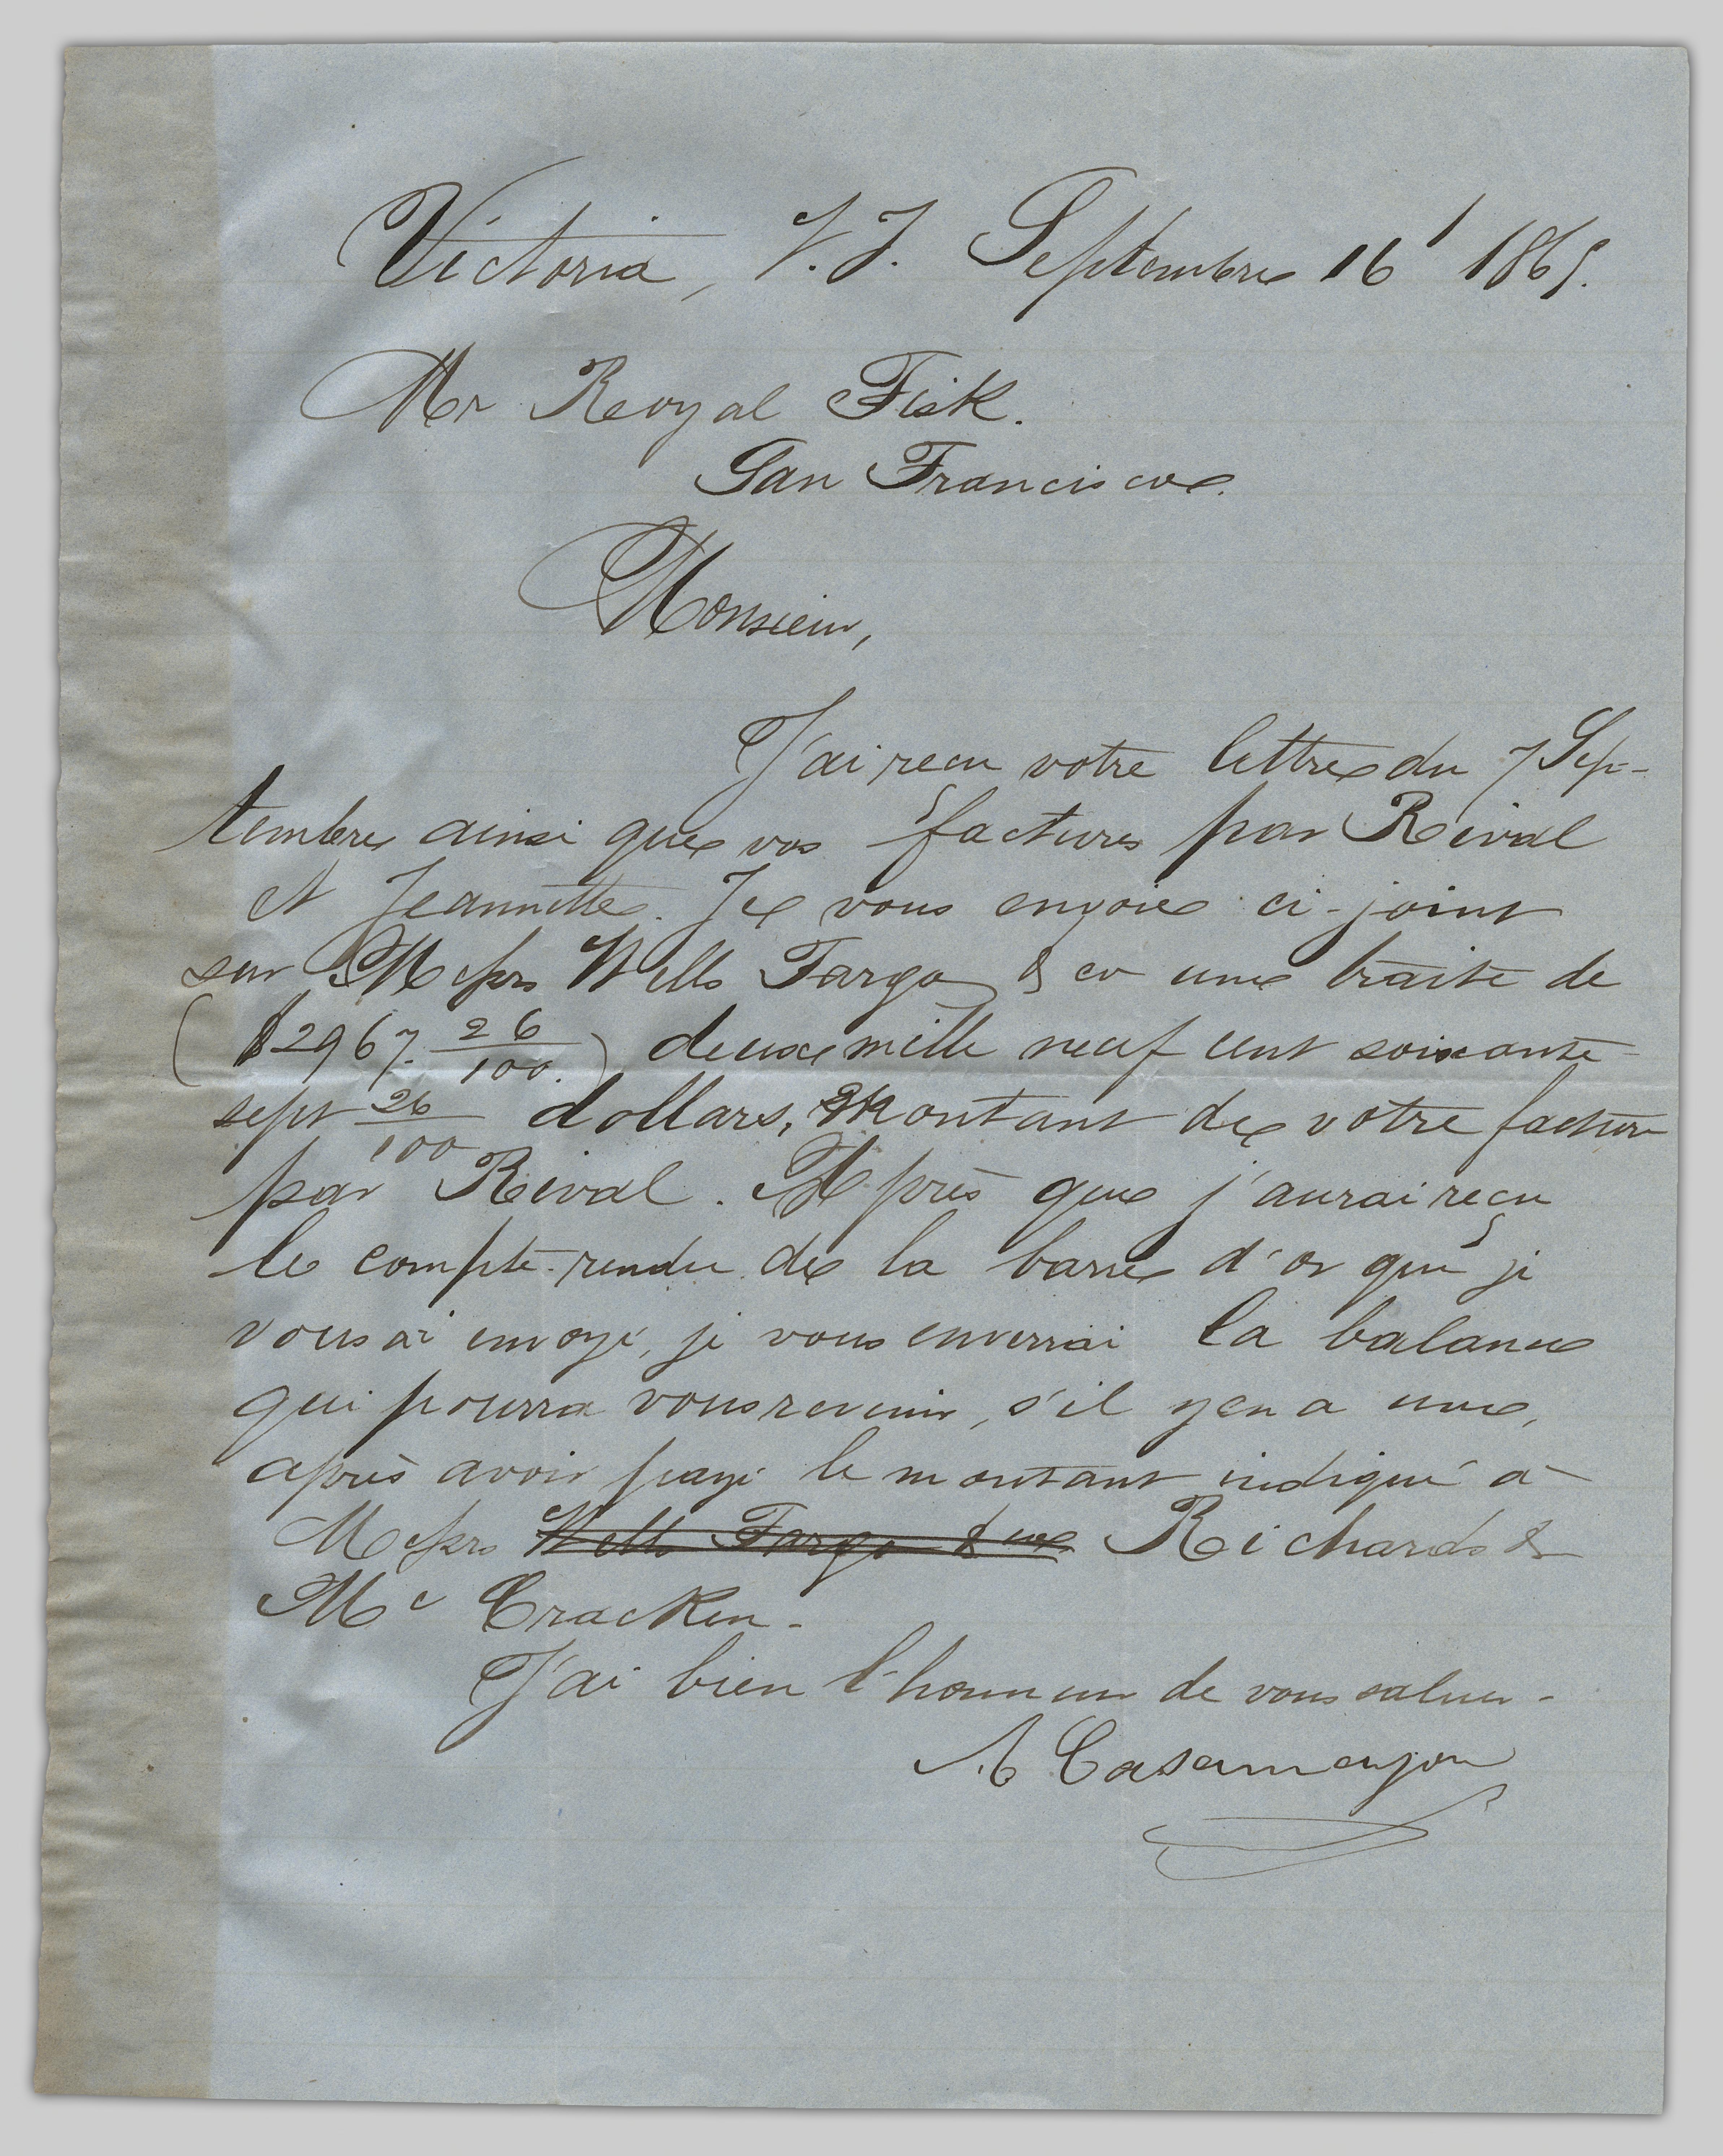 Victoria, V. I. Septembre 16 1865.
Mr Royal Fisk.
San Francisco.
Monsieur,
J'ai reçu votre lettre du 7 Sep-
tembre ainsi que vos factures par Rival
et Jeannette. Je vous envoie ci-joint
sur Messrs Wells Fargo & co une traite de
($2967. 26/100.) deux mille neuf cent soixante
sept 26/100 dollars, montant de votre facture
par Rival. Après que j'aurai reçu
le compte-rendu de la barre d'or que je
vous ai envoyé, je vous enverrai la balance
qui pourra vous revenir, s'il y en a une,
après avoir payé le montant indiqué à
Messrs Wells Fargo & Richards &
Mc Cracken.
J'ai bien l'honneur de vous saluer.
A Casamayou